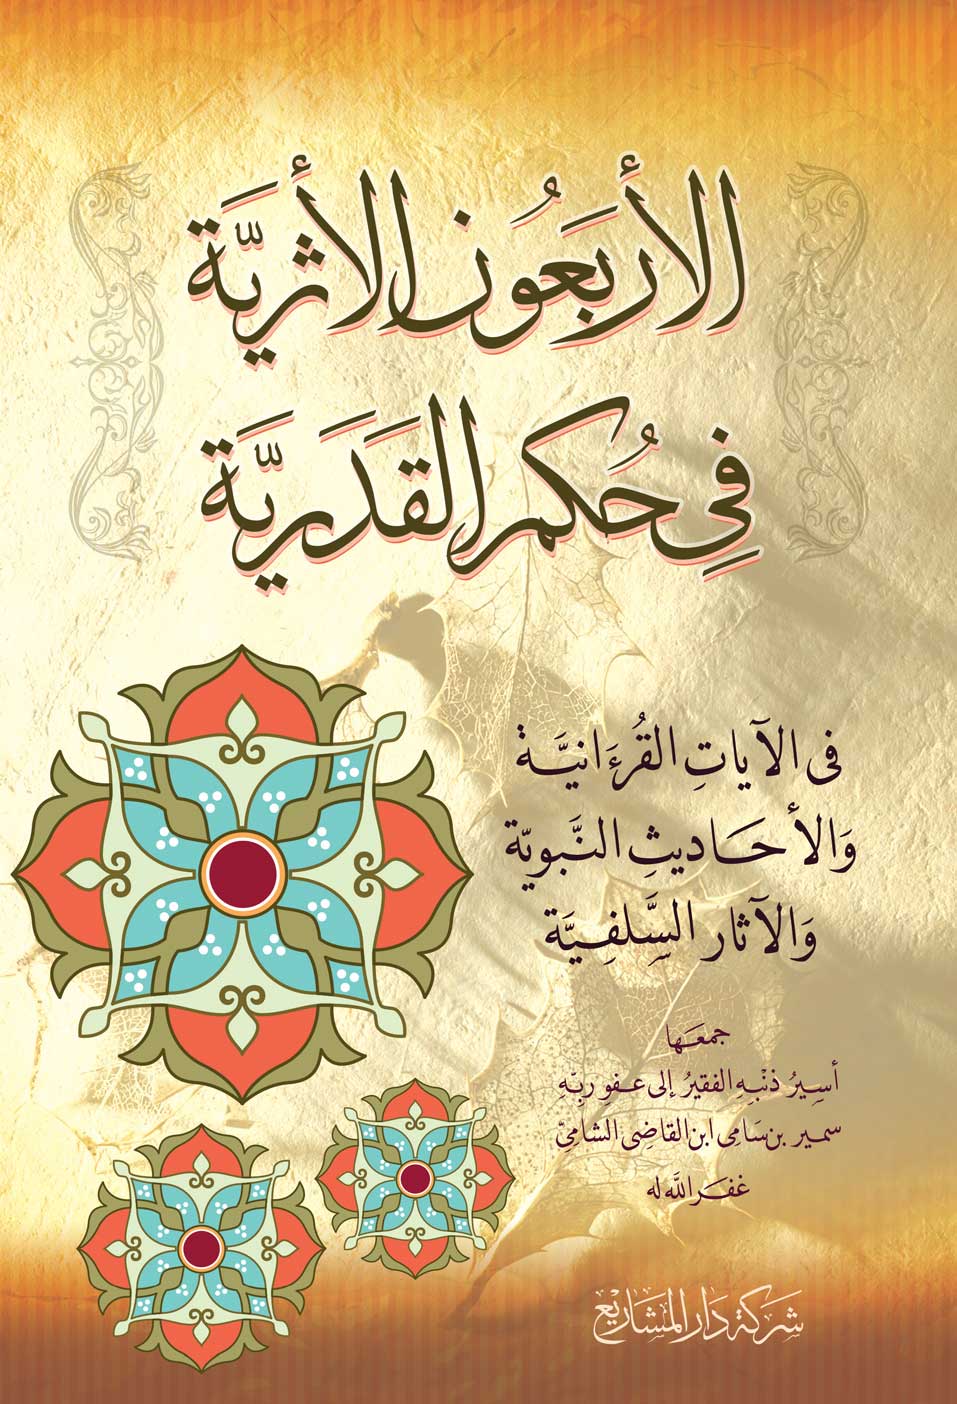 الأربَعُون الأثريَّة
فِي حُكم القَدَريَّة
فى الآياتِ القُرءَانيَّة
وَالأحَاديثِ النَّبويّة
وَالآثار السَّلفِيَّة
جمعَها
أسِيرُ ذنْبِهِ الفقيرُ إلى عفو ربِّهِ
سمير بن سَامى ابن القاضى الشامىّ
غفَر اللَّه له
شركة دَار المشَاريع